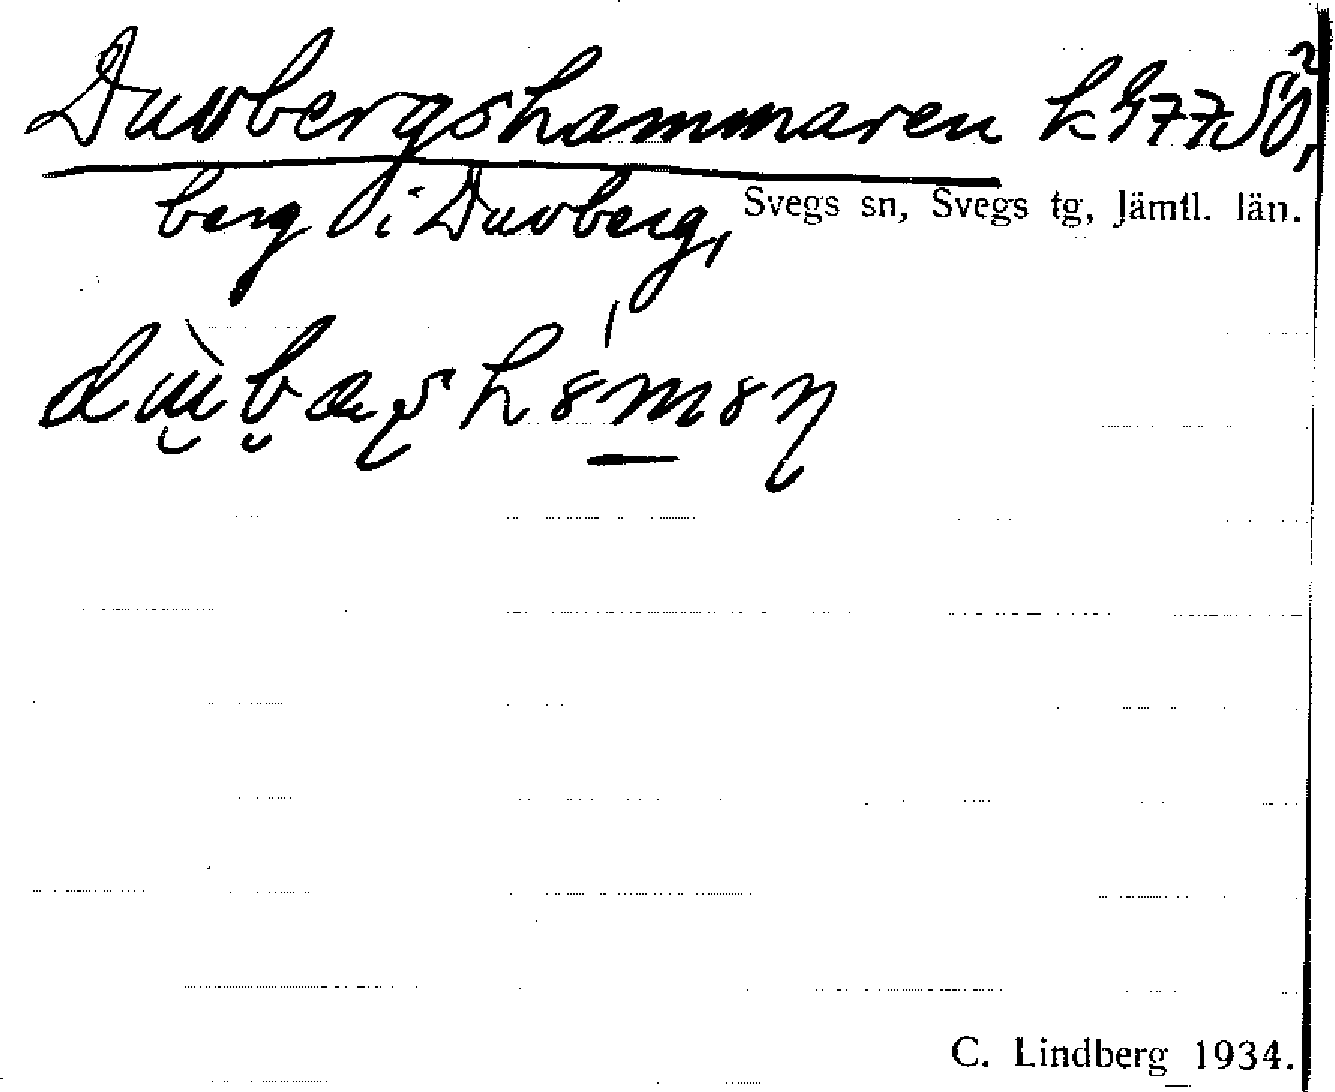 Duvbergshammaren k 977 SÖ,
berg i Duvberg, Svegs sn, Svegs tg, Jämtl. län.
C. Lindberg 1934.